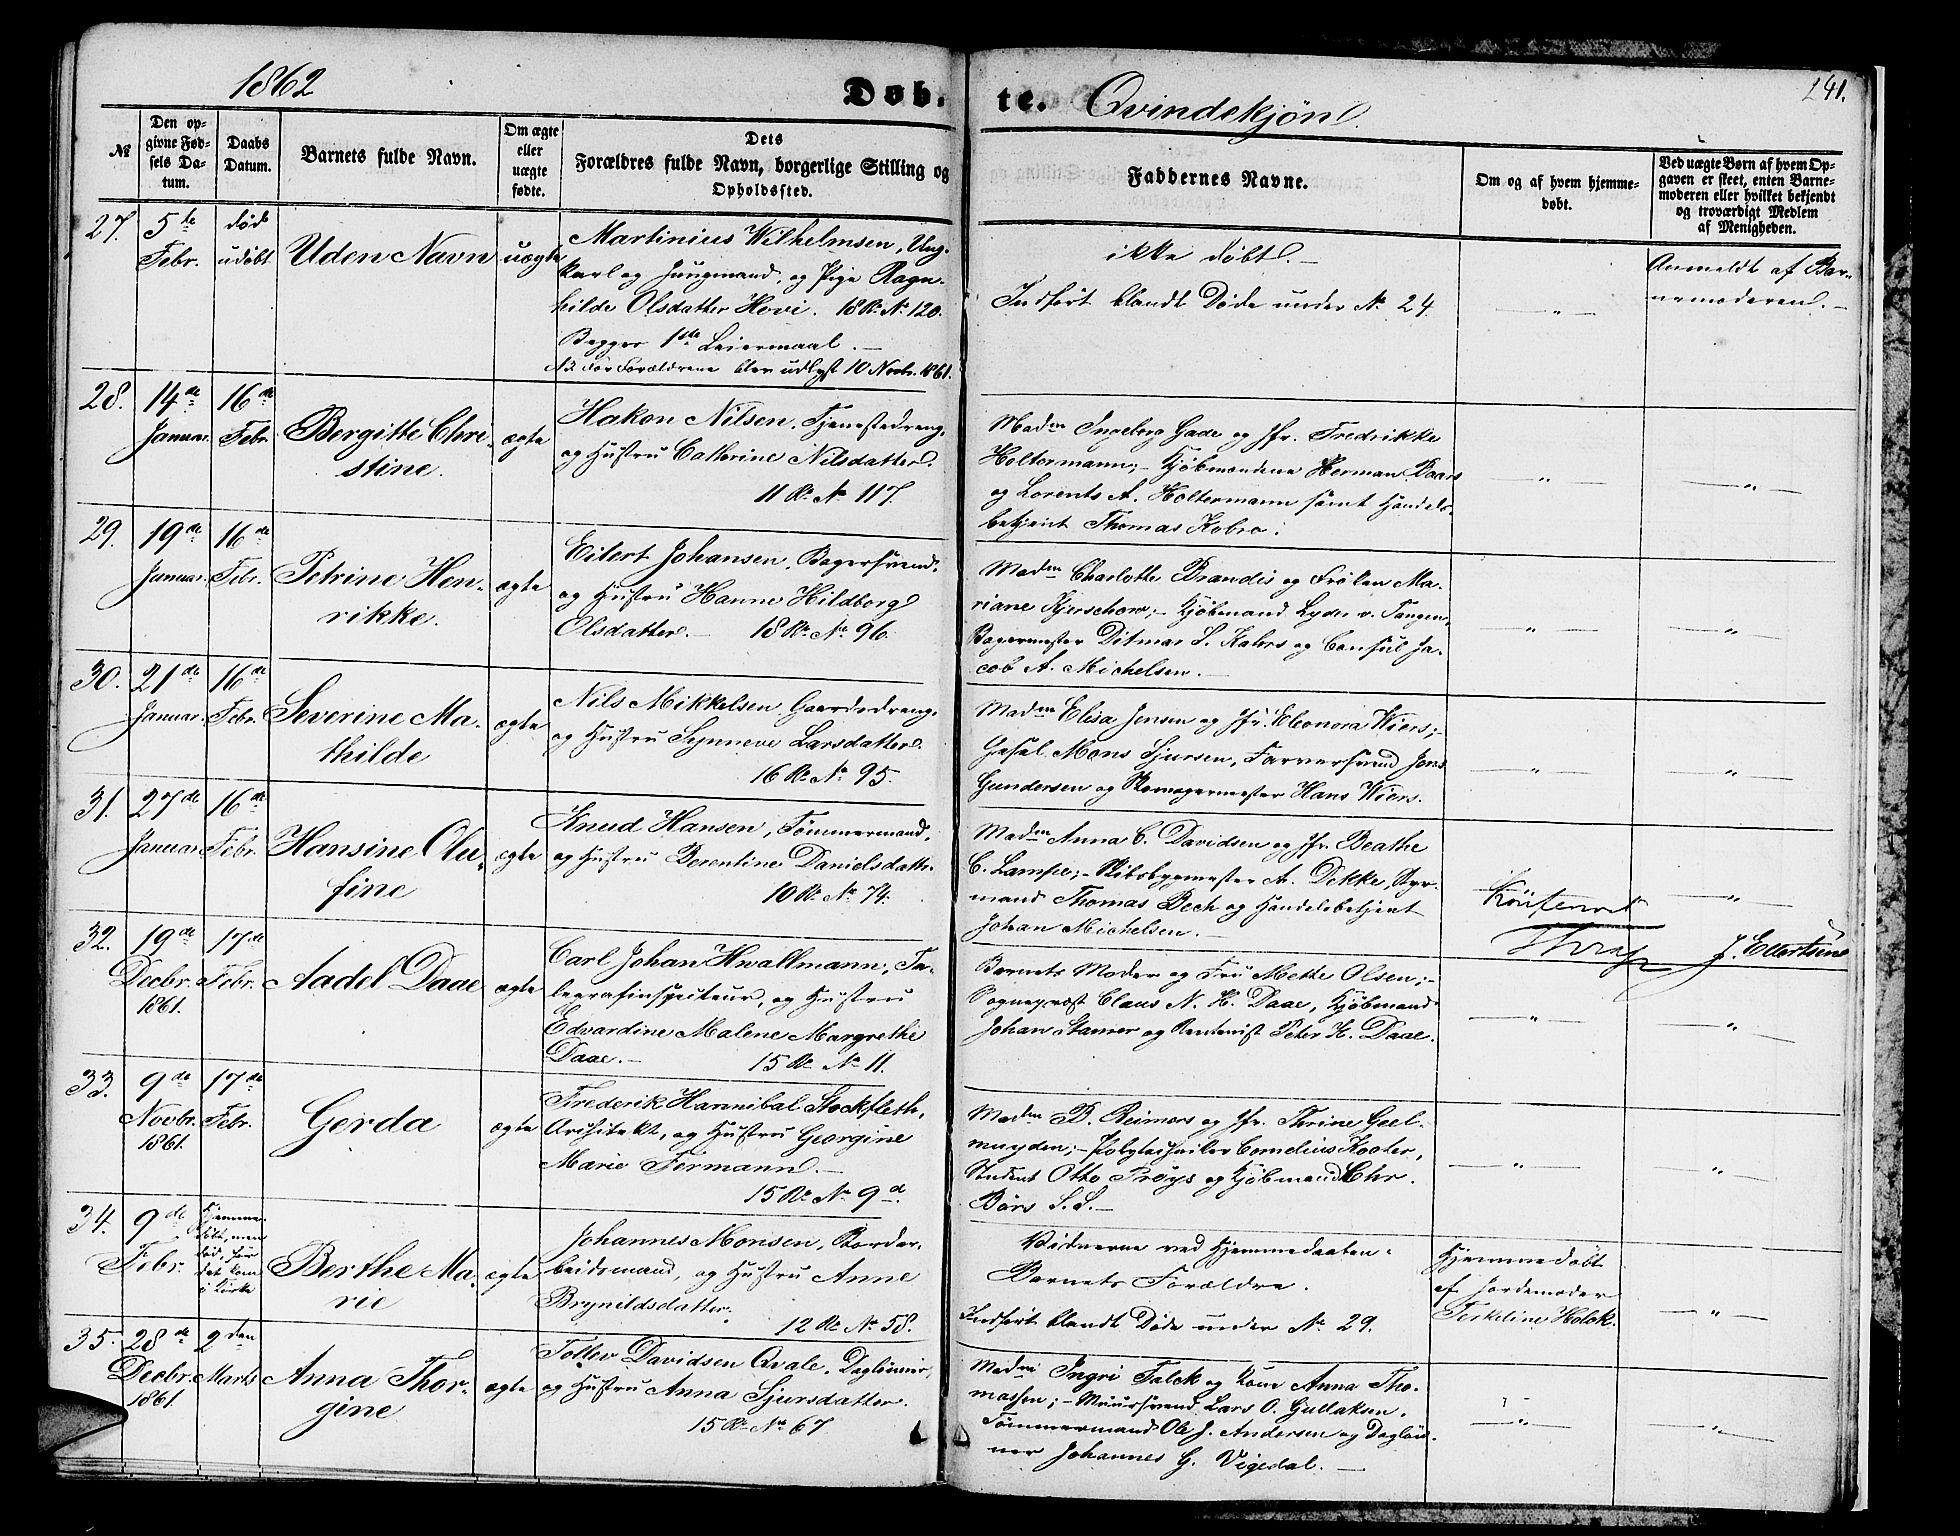 1862
Døb-
te. Qvindekjøn.
241.
№
Den op-
givne Fød-
sels Da-
tum.
Daabs
Datum.
Barnets fulde Navn.
Om ægte
eller
uægte
fødte.
Dets
Forældres fulde Navn, borgerlige Stilling og
Opholdssted.
Faddernes Navne.
Om og af hvem hjemme-
døbt.
Ved uægte Børn af hvem Op-
gaven er skeet, enten Barne-
moderen eller hvilket bekjendt
og troværdigt Medlem
af Menigheden.
27.
5te
Febr.
død
udøbt
Uden Navn
uægte
Martinius Wilhelmsen, Ung-
karl og Haugmand, og Pige Ragn-
hilde Olsdatter Hovi. 18 R. № 120.
Begges 1ste Leiermaal.
For Forældrene blev udlyst 10 Novbr. 1861.
ikke døbt.
Indført blandt Døde under № 24
Anmeldt af Bar-
nemoderen.
28.
14de
Januar.
16de
Febr.
Bergitte Chri-
stine.
ægte
Hakon Nilsen, Tjenestedreng,
og Hustru Catherine Nilsdatter.
11 R. № 117.
Madm Ingeborg Gade og Jfr. Fredrikke
Holtermann; Kjøbmændene Herman Baars
og Lorents A. Holtermann samt Handels-
betjent Thomas Kobro.
29.
19de
Januar.
16de
Febr.
Petrine Hen-
rikke.
ægte
Eilert Johansen, Bagersvend,
og Hustru Hanne Hildborg
Olsdatter. 18 R. № 96.
Madm Charlotte Brandis og Frøken Ma-
riane Kjerschow; Kjøbmand Lyder v. Tangen,
Bagermester Ditmar S. Kahrs og Consul Ja-
cob A. Michelsen.
30.
21de
Januar.
16de
Febr.
Severine Ma-
thilde
ægte
Nils Mikkelsen, Gaardsdreng,
og Hustru Synneve Larsdatter.
16 R. № 95.
Madm Elisa Jensen og Jfr. Eleonora Wiers;
Gesel Mons Sjursen, Farversvend Jens
Gundersen og Skomagermester Hans Wiers.
31.
27de
Januar.
16de
Febr.
Hansine Olu-
fine
ægte
Knud Hansen, Tømmermand,
og Hustru Berentine Danielsdattr.
10 R. № 74.
Madm Anna C. Davidsen og Jfr. Beathe
C. Lampe; Skibsbygmester A. Dekke, Styr-
mand Thomas Bech og Handelsbetjent
Johan Michelsen.
J. Ellertsen
32.
19de
Decbr.
1861.
17de
Febr.
Aadel Daae
ægte
Carl Johan Hwallmann, Te-
legrafinspecteur, og Hustru
Edvardine Malene Margrethe
Daae. 15 R. № 11.
Barnets Moder og Fru Mette Olsen;
Sognepræst Claus N. H. Daae, Kjøbmand
Johan Stamer og Rentenist Peter H. Daae.
33.
9de
Novbr.
1861.
17de
Febr.
Gerda
ægte
Frederik Hannibal Stockfleth,
Arkitekt, og Hustru Georgine
Marie Fermann.
15 R. № 9 d.
Madm B. Reimers og Jfr. Thrine Geel-
muyden; Polytechniker Cornelius Kooter,
Student Otto Prøys og Kjøbmand Chr.
Børs S. S.
34.
9de
Febr.
Hjemme-
døbt, men
død, før
det kom
i Kirke
Berthe Ma-
rie
ægte
Johannes Monsen, Bordar-
beidsmand, og Hustru Anne
Brynildsdatter.
12 R. № 58.
Vidnerne ved Hjemmedaaben:
Barnets Forældre.
Indført blandt Døde under № 29.
Hjemmedøbt
af Jordemoder
Terkeline Holck.
35.
28de
Decbr.
1861.
2den
Marts
Anna Thor-
gine
ægte
Tollev Davidsen Qvale, Dagleier,
og Hustru Anna Sjursdatter.
15 R. № 67.
Madm Ingri Falck og Kone Anna Tho-
massen; Muursvend Lars O. Gullaksen,
Tømmermand Ole J. Andersen og Daglei-
ner Johannes G. Vigedal.